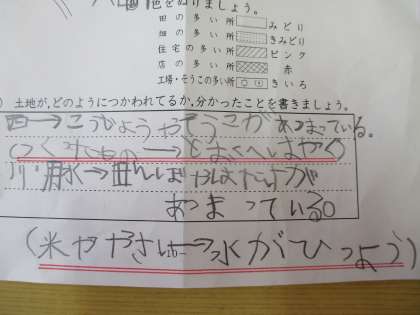 色をぬりましょう。
田の多い所 みどり
畑の多い所 きみどり
住宅の多い所 ピンク
店の多い所 赤
工場・そうこの多い所 きいろ
土地が、どのようにつかわれてるか、分かったことを書きましょう。
西→こうじょうやそうこがあつまっている。
(つくったもの→とおくへはやく)
川・用水→田んぼやはたけが
あつまっている。
(米ややさい→水がひつよう)